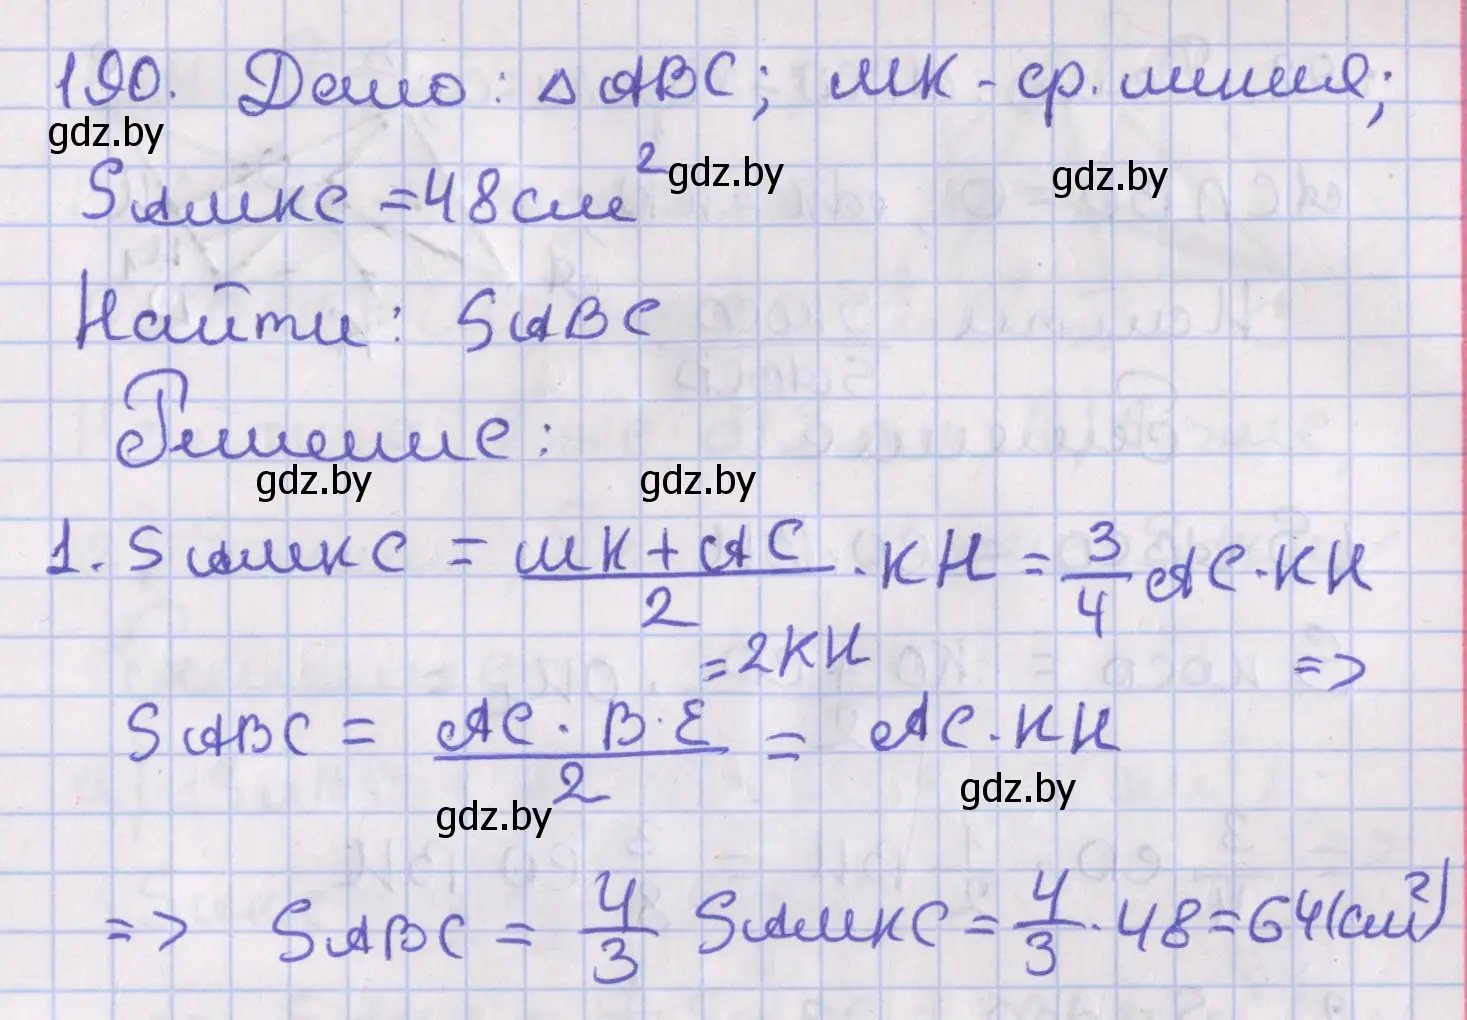 190. Дано: △ABC; MK - ср. линия;
gdz.by
SAMKC = 48 см² gdz.by gdz.by
Найти: SABC
Решение:
gdz.by gdz.by
1. SAMKC = (MK + AC)/2 · KH = 3/4 AC · KH
=2KH =>
SABC = (AC · B·E)/2 = AC · KH
gdz.by gdz.by
=> SABC = 4/3 SAMKC = 4/3 · 48 = 64 (см²)